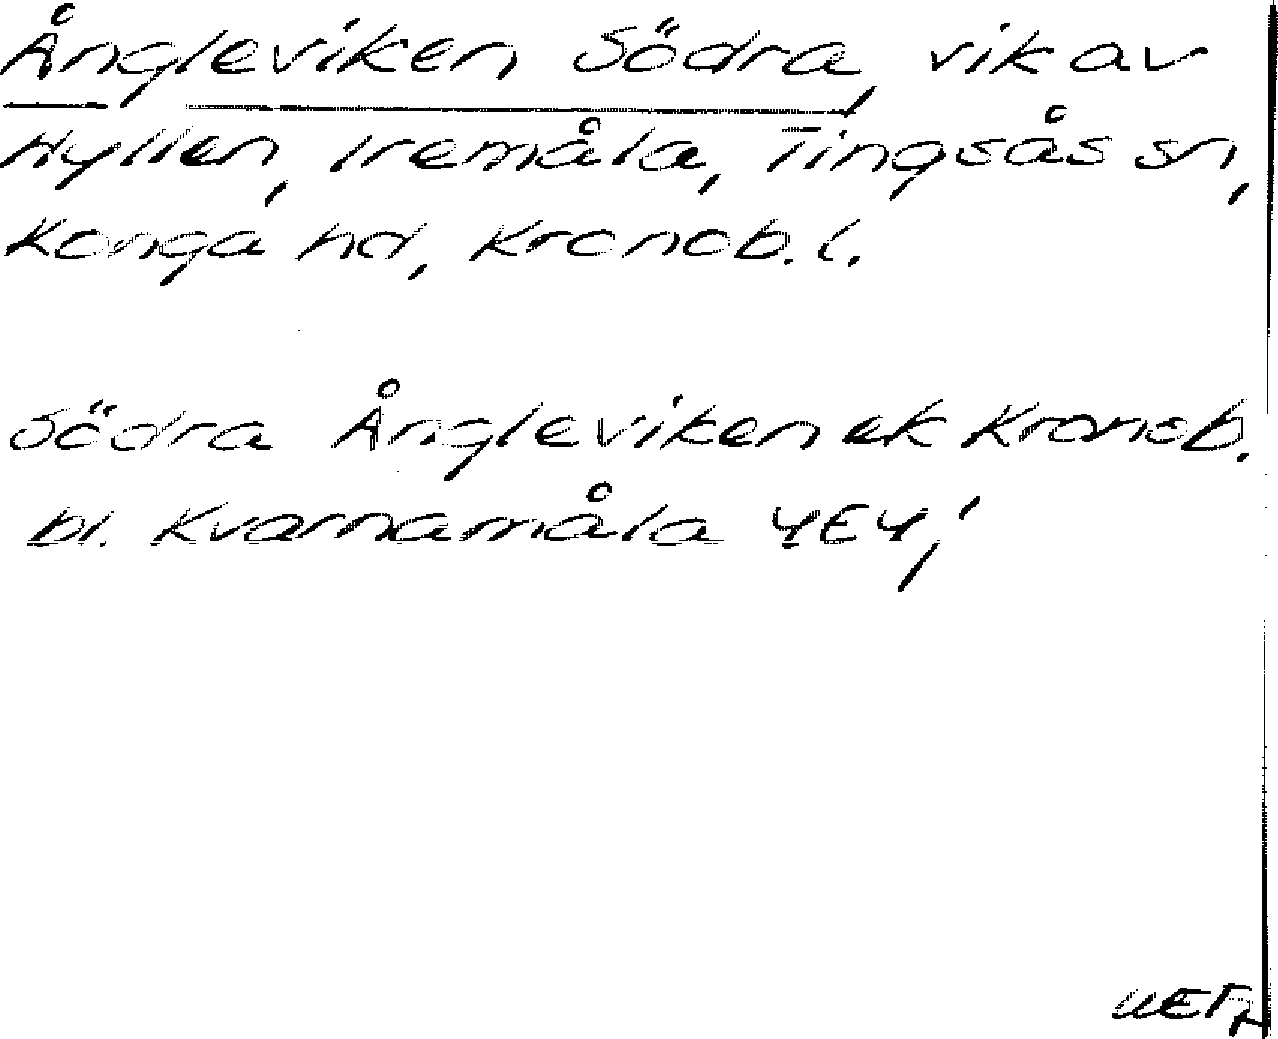 Ångleviken Södra, vik av
Hyllen, Iremåla, Tingsås sn,
Konga hd, Kronob. l.
Södra Ångleviken ek Kronob.
bl. Kvarnamåla 4E4,